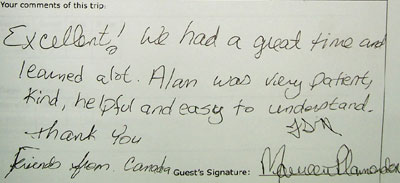 Your comments of this trip:
Excellent! We had a great time and
learned alot. Alan was very patent,
kind, helpful and easy to understand.
Thank You
Friends from Canada Guest's Signature: